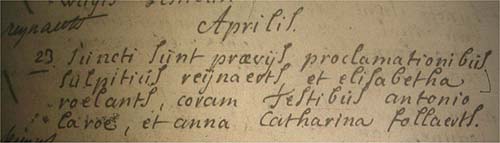 Aprilis.
reynaerts
23 Juncti sunt prævijs proclamationibus
sulpitius reijnaerts et elisabetha
roelants, coram testibus antonio
laroe, et anna catharina follaerts.